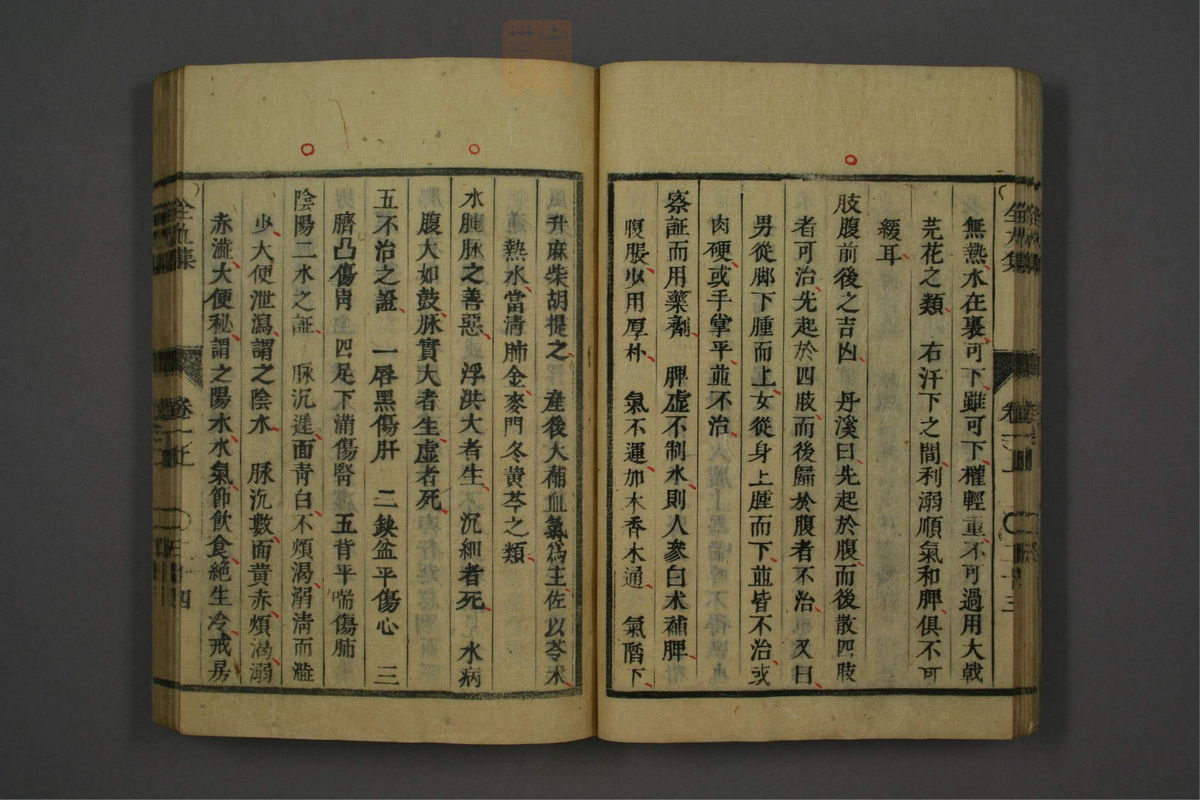 無熱水在裏可下雖可下權輕重不可過用大戟
芫花之類 右汗下之間利溺順氣和脾俱不可
緩耳
肢腹前後之吉凶 丹溪曰先起於腹而後散四肢
者可治先起於四肢而後歸於腹者不治 又曰
男從脚下腫而上女從身上腫而下並皆不治或
肉硬或手掌平並不治
察証而用藥劑 脾虛不制水則人參白朮補脾
腹脹少用厚朴 氣不運加木香木通 氣陷下
升麻柴胡提之 產後大補血氣爲主佐以苓朮
熱水當清肺金麥門冬黄芩之類
水腫脉之善惡 浮洪大者生沉細者死 水病
腹大如鼓脉實大者生虛者死
五不治之證 一唇黑傷肝 二缺盆平傷心 三
臍凸傷胃 四足下滿傷腎 五背平喘傷肺
陰陽二水之証 脉沉遲面青白不煩渴溺清而澁
少大便泄瀉謂之陰水 脉沉數面黄赤煩渴溺
赤澁大便秘謂之陽水水氣節飲食絶生冷戒房
全九集
卷一上